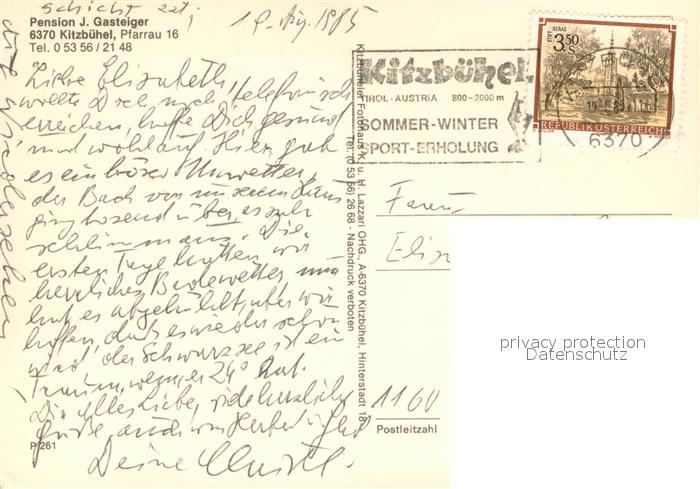 schickt
Pension J. Gasteiger
6370 Kitzbühel, Pfarrau 16
Tel. 0 53 56 / 21 48
19. Aug. 1985
Liebe Elisabeth,
wollte Dich noch telefonisch
erreichen, hoffe Dich gesund
und wohlauf. Hier gab
es ein böses Unwetter,
der Bach vor unserem Haus
ging tosend über, es sah
schlimm aus. Die
ersten Tage hatten wir
herrliches Badewetter, nun
hat es abgekühlt, aber wir
hoffen, daß es wieder schön
wird, der Schwarzsee ist ein
Traum, wenn er 24° hat.
Dir alles Liebe, viele herzliche
Grüße, auch von Herbert
Deine
auf Wiedersehen
P 261
Kitzbüheler Fotohaus K. u. H. Lazzari OHG., A-6370 Kitzbühel, Hinterstadt 18
Tel. (0 53 56) 26 68 - Nachdruck verboten
Kitzbühel
TIROL-AUSTRIA 800-2000 m
SOMMER-WINTER
SPORT-ERHOLUNG
6370
3.50 S
REPUBLIK ÖSTERREICH
Frau
1160
Postleitzahl
privacy protection
Datenschutz